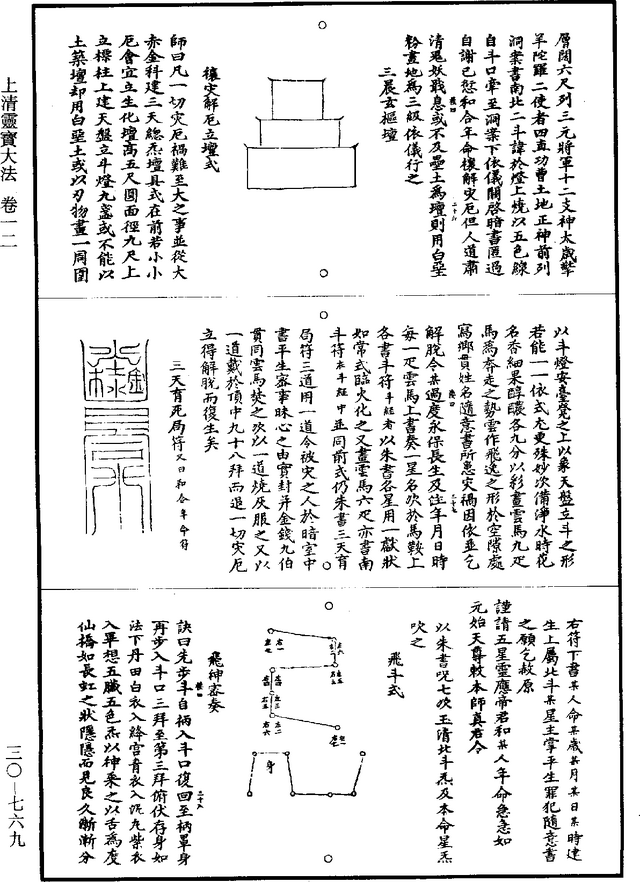 層闊六尺列三元將軍十二支神太歲擎
羊陀羅二使者四直功曹土地正神前列
洞案書南北二斗諱於燈上燒以五色線
自斗口牽至洞案下依儀關啓暗書匿過
自謝己愆和合年命禳解災厄但人道肅
清鬼妖戢息或不及壘土為壇則用白堊
粉畫地為三級依儀行之
三晨玄樞壇
禳災解厄立壇式
師曰凡一切災厄禍難至大之事並從大
赤金科建三天總炁壇具式在前若小小
厄會宜立生化壇高五尺圓面徑九尺上
立標柱上建天盤立斗燈九盞或不能以
土築壇却用白堊土或以刃物畫一周圍
以斗燈安臺凳之上以象天盤立斗之形
若能一一依式尤更殊妙次備淨水時花
名香細果醇醲各九分以彩畫雲馬九疋
馬為奔走之勢雲作飛逸之形於空隙處
寫鄉貫姓名隨意書所患災禍因依並乞
解脫令某過度永保長生及注年月日時
每一疋雲馬上書奏一星名次於馬鞍上
各書斗符斗經者以朱書各星用一獻狀
如常式臨火化之又畫雲馬六疋亦書南
斗符本斗經中並同前式仍朱書三天育
局符三道用一道令被災之人於暗室中
書平生密事昧心之由實封并金錢九伯
貫同雲馬焚之次以一道燒灰服之又以
一道戴於頂中九十八拜而退一切災厄
立得解脫而復生矣
三天育死局符又曰和合年命符
右符下書某人命某歲某月某日某時建
生上屬北斗某星主掌平生罪犯隨意書
之願乞赦原
謹請五星靈應帝君和某人年命急急如
元始天尊敕本師真君令
以朱書呪七次玉清北斗炁及本命星炁
吹之
飛斗式
身
飛神密奏
訣曰先步斗自柄入斗口復回至柄罩身
再步入斗口三拜至第三拜俯伏存身如
法下丹田白衣入絳宮青衣入泥丸紫衣
入畢想五臟五色炁以神乘之以舌為度
仙橋如長虹之狀隱隱而見良久漸漸分
上清靈寶大法 卷一二
三〇—七六九